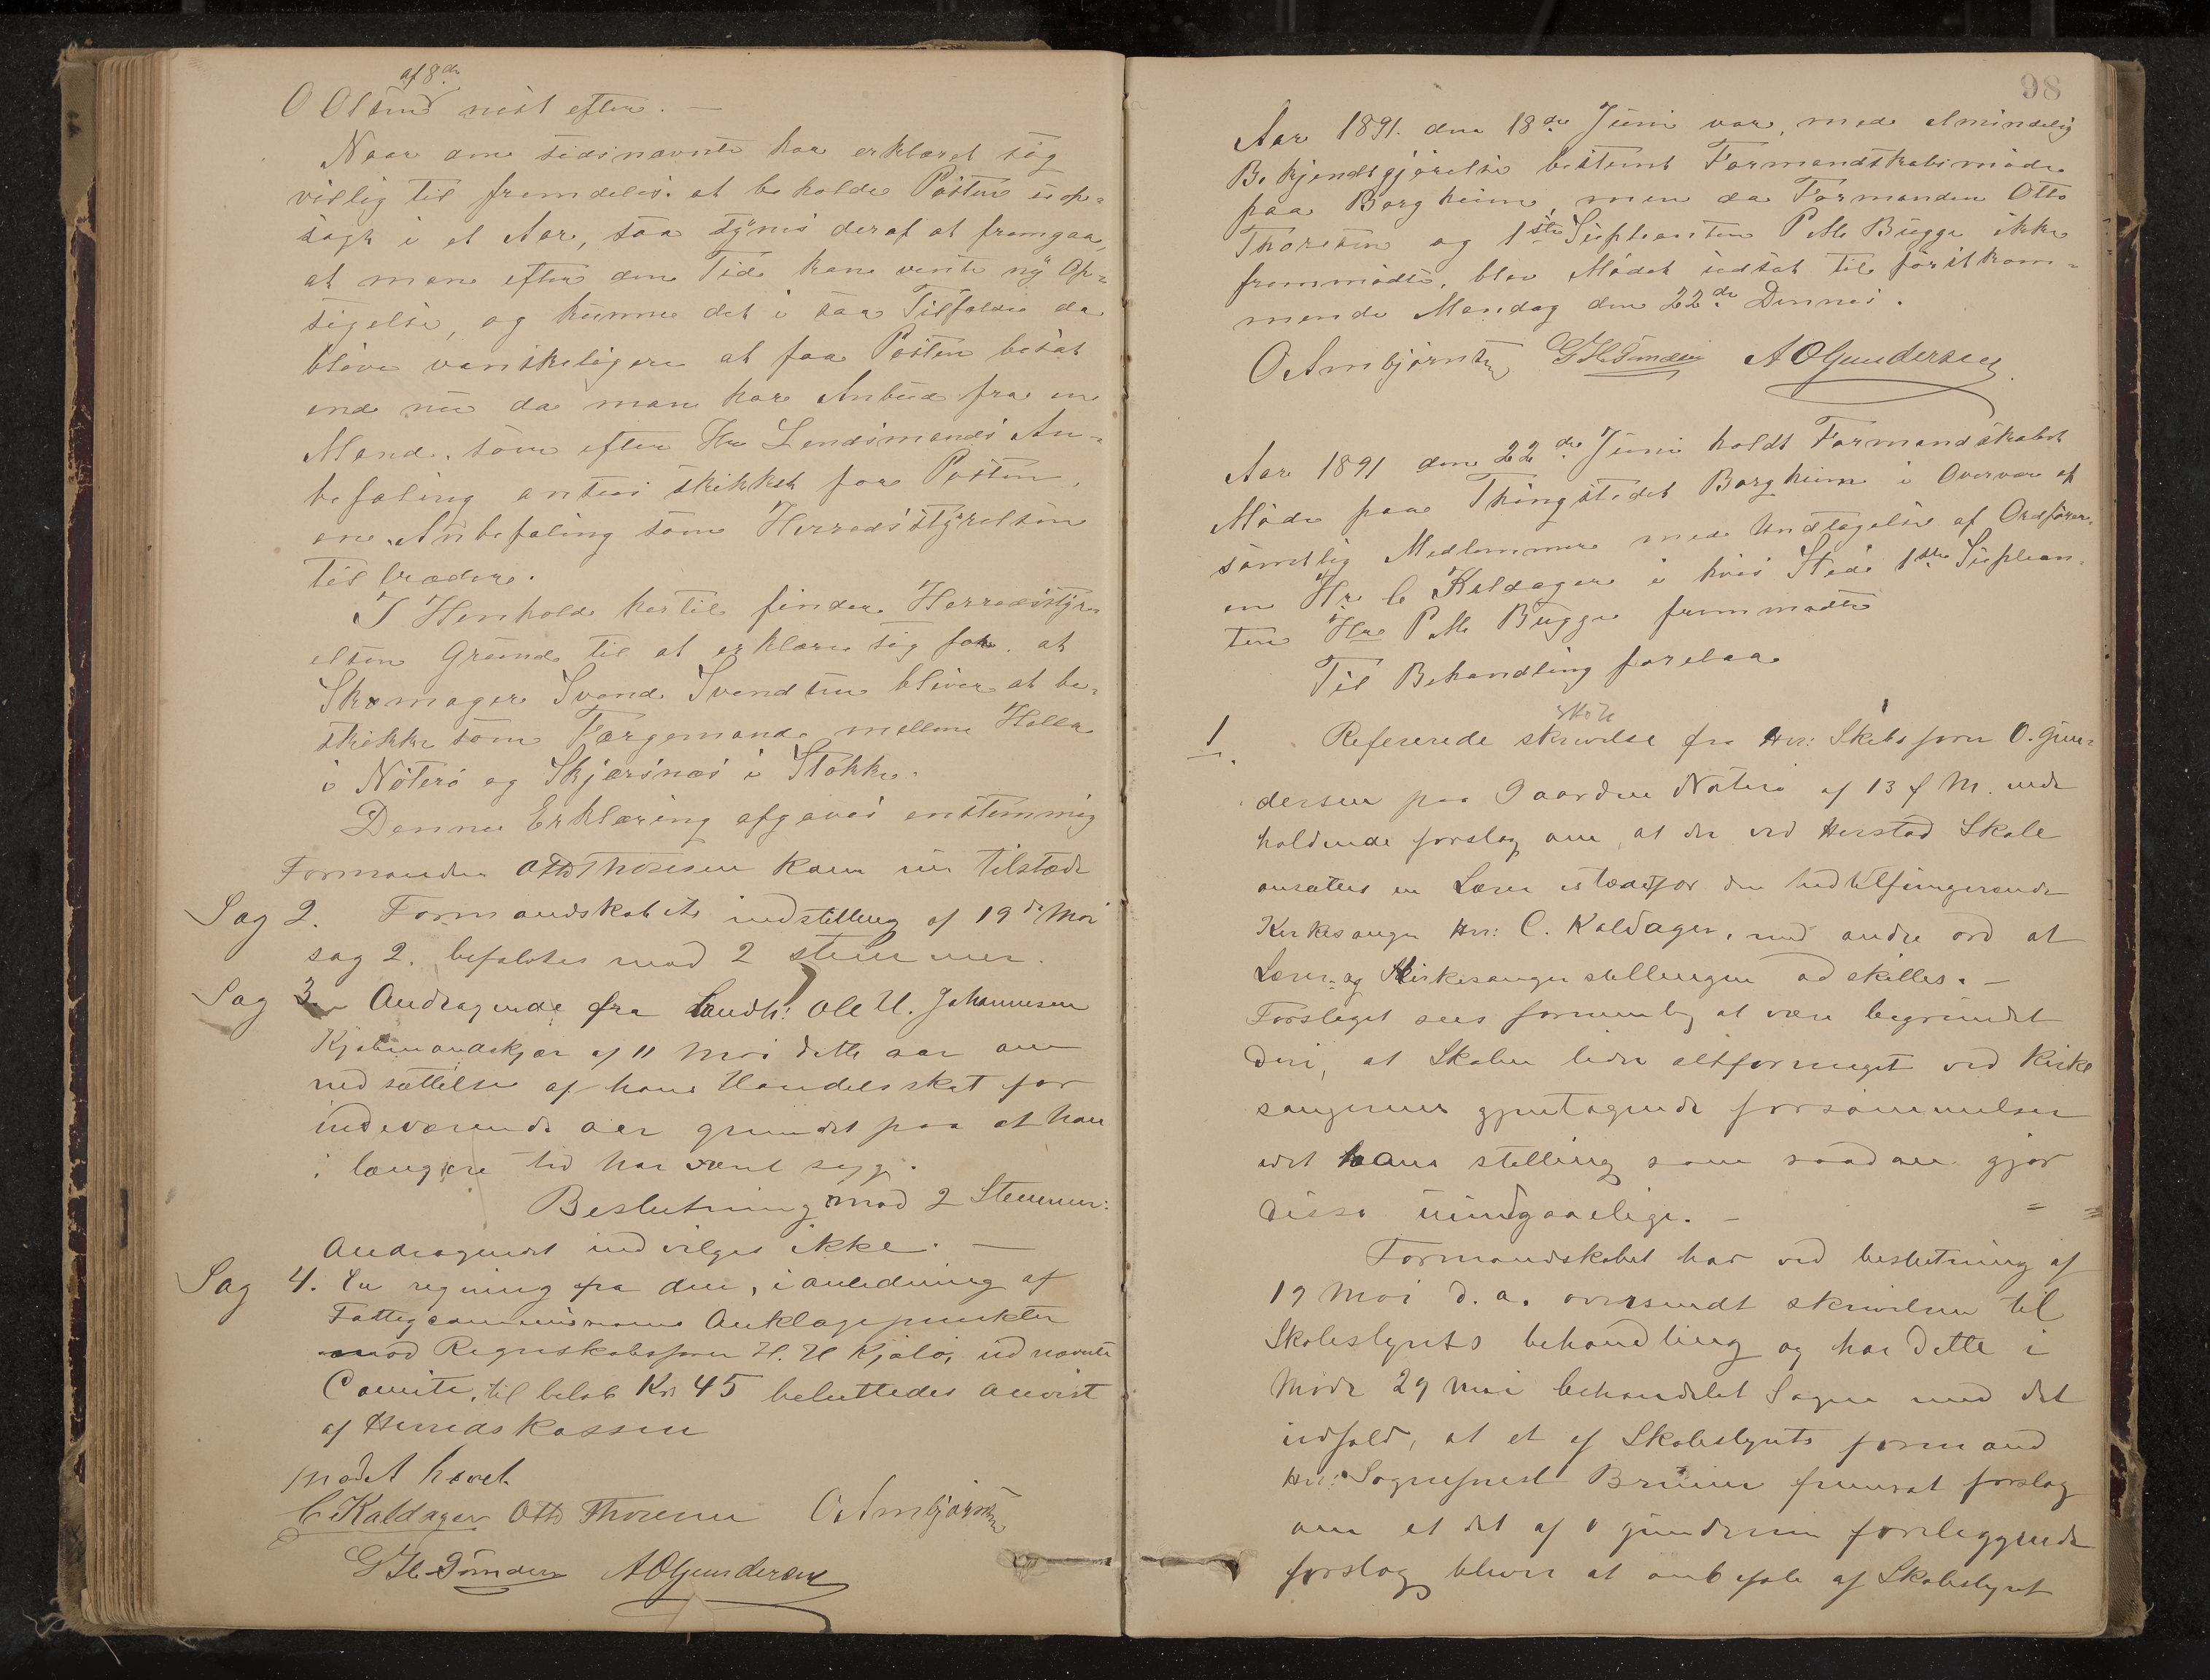 af 8de
O Olsens nest efter. —
Naar am sidsnævnte har erklæret sig
villig til fremdeles at beholde Posten uop-
sagt i et Aar, saa synes deraf at fremgaa,
at man efter den Tid kan vente ny Op-
sigelse, og kunne det i saa Tilfælde da
blive vanskeligere at faa Posten besat
end nu da man har Anbud fra en
Mand, som efter Hr Lensmands An-
befaling antaes skikket for Posten,
en Anbefaling som Herredsstyrelsen
tiltræder.
I Henhold hertil finder Herredsstyr-
elsen Grund til at erklære sig for at
Skomager Svend Svendsen bliver at be-
skikke som Færgemand mellem Holla
i Nøterø og Skjærsnæs i Stokke.
Denne Erklæring afgaves enstemmig
Formanden Otto Thoresen kom nu tilstæde
Sag 2. Formandskabets indstilling af 19de Mai
sag 2. befalotes mod 2 stemmer.
Sag 3. Andragende fra Landh: Ole U. Johannesen
Kjøbmandskjær af 11 Mai dette aar om
nedsættelse af hans Handelsskat for
indeværende aar grundet paa at han
i længere tid har været syg.
Beslutning mod 2 Stemmer:
Andragendet indvilges ikke. —
Sag 4. En regning fra den, i anledning af
Fattigcommissionens Anklagepunkter
mod Regnskabsfører H. H Kjølø, udnævnte
Comite, til beløb Kr 45 beluttedes anvist
af Herredskassen
mødet hævet
C Kaldager Otto Thoresen O Ambjørnsen
G H Tandberg A O Gundersen
98
Aar 1891. den 18de Juni var, med almindelig
Bekjendtgjørelse bestemt Formandskabsmøde
paa Borgheim, men da Formanden Otto
Thoresen og 1ste Supleanten P M Bugge ikke
fremmødte, blev Mødet udsat til førstkom-
mende Mandag den 22de Dennes.
O Ambjørnsen G H A O Gundersen
Aar 1891 den 22de Juni holdt Formandskabet
Møde paa Thingstedet Borgheim i Overvær af
samtlig Medlemmer med Undtagelse af Ordfører-
en Hr C Kaldager i hvis Sted 1ste Suplean-
ten Hr P M Bugge fremmødte
Til Behandling forelaa
1. Refererede skrivelse fra Hrr: Skibsfører O. Gun-
dersen paa Gaarden Nøterø af 13 f M. inde
holdende forslag om, at der ved Herstad Skole
ansættes en Lærer istædetfor den hidtilfungerende
Kirkesanger Hrr: C. Kaldager, med andre ord at
Lærer- og Kirkesanger stillingen adskilles. —
Forslaget sees fornemlig at være begrundet
deri, at Skolen lider altformeget ved Kirke
sangerens gjentagende forsømmelser
idet hans stilling som saadan gjør
disse uundgaaelige. —
Formandskabet har ved beslutning af
19 Mai d. a. oversendt skrivelsen til
Skolestyrets behandling og har dette i
Møde 29 Mai behandlet Sagen med det
udfald, at et af Skolestyrets formand
Hrr: Sogneprest Bruun fremsat forslag
om at det af O Gundersen foreliggende
forslag bliver at anbefale af Skolestyret